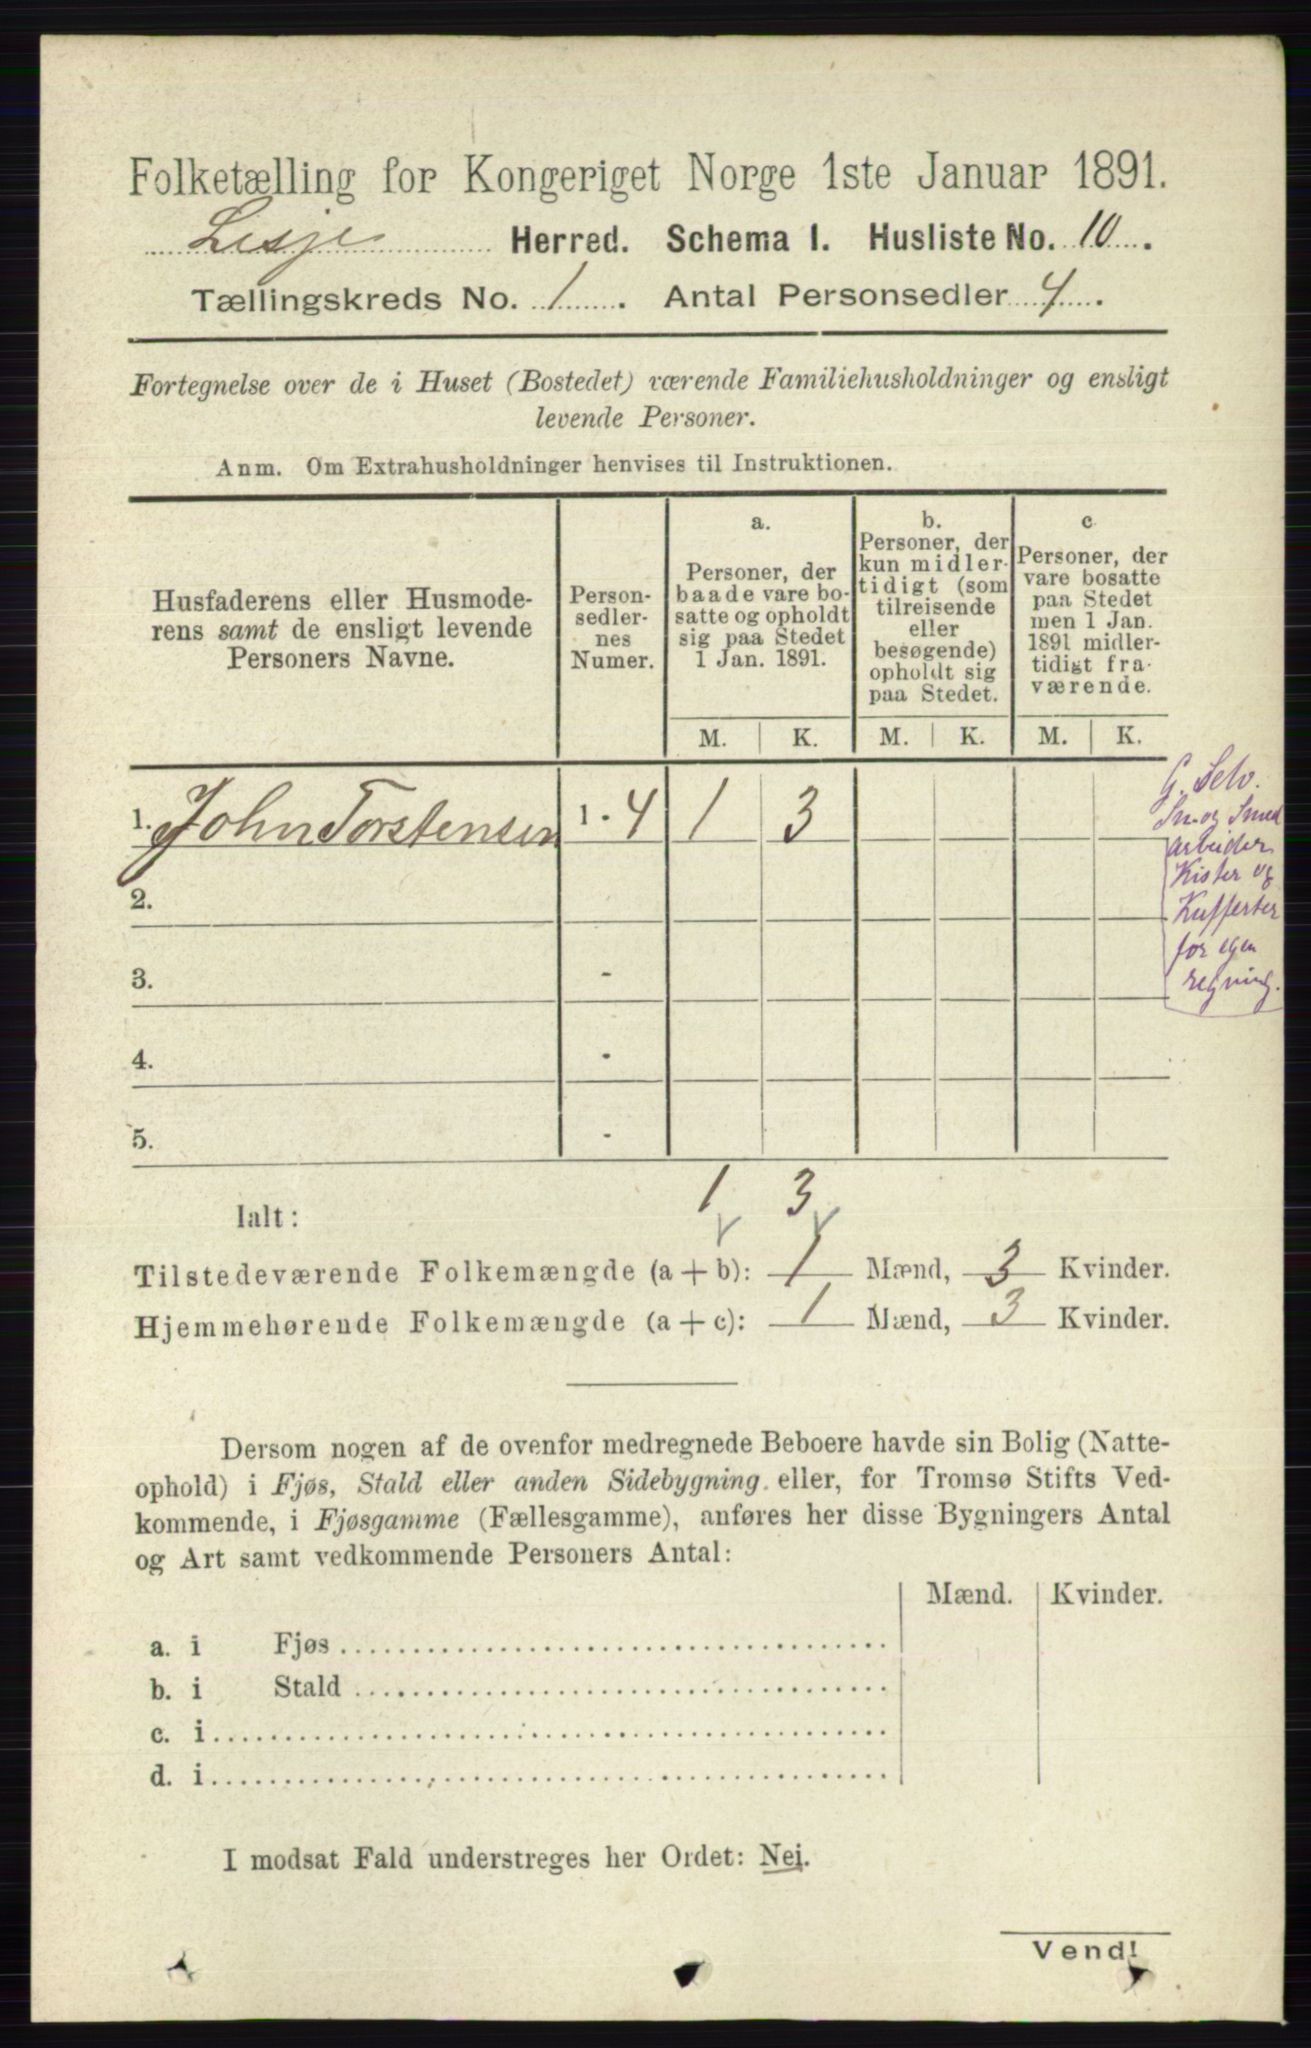 Folketælling for Kongeriget Norge 1ste Januar 1891.
Lesje Herred. Schema I. Husliste No. 10.
Tællingskreds No. 1. Antal Personsedler 4.
Fortegnelse over de i Huset (Bostedet) værende Familiehusholdninger og ensligt
levende Personer.
Anm. Om Extrahusholdninger henvises til Instruktionen.
Husfaderens eller Husmode-
rens samt de ensligt levende
Personers Navne.
Person-
sedler-
nes
Numer.
a.
Personer, der
baade vare bo-
satte og opholdt
sig paa Stedet
1 Jan. 1891.
b.
Personer, der
kun midler-
tidigt (som
tilreisende
eller
besøgende)
opholdt sig
paa Stedet.
c
Personer, der
vare bosatte
paa Stedet
men 1 Jan.
1891 midler-
tidigt fra-
værende.
M. K. M. K. M. K.
1. John Torstensen 1 - 4 1 3
G. Selv.
Sn. og Smed
arbeider
Kister og
Kufferter
for egen
regning.
2.
3. -
4. -
5. -
Ialt: 1 3
Tilstedeværende Folkemængde (a + b): 1 Mænd, 3 Kvinder.
Hjemmehørende Folkemængde (a + c): 1 Mænd, 3 Kvinder.
Dersom nogen af de ovenfor medregnede Beboere havde sin Bolig (Natte-
ophold) i Fjøs, Stald eller anden Sidebygning eller, for Tromsø Stifts Ved-
kommende, i Fjøsgamme (Fællesgamme), anføres her disse Bygningers Antal
og Art samt vedkommende Personers Antal:
Mænd. Kvinder.
a. i Fjøs
b. i Stald
c. i
d. i
I modsat Fald understreges her Ordet: Nei.
Vend!